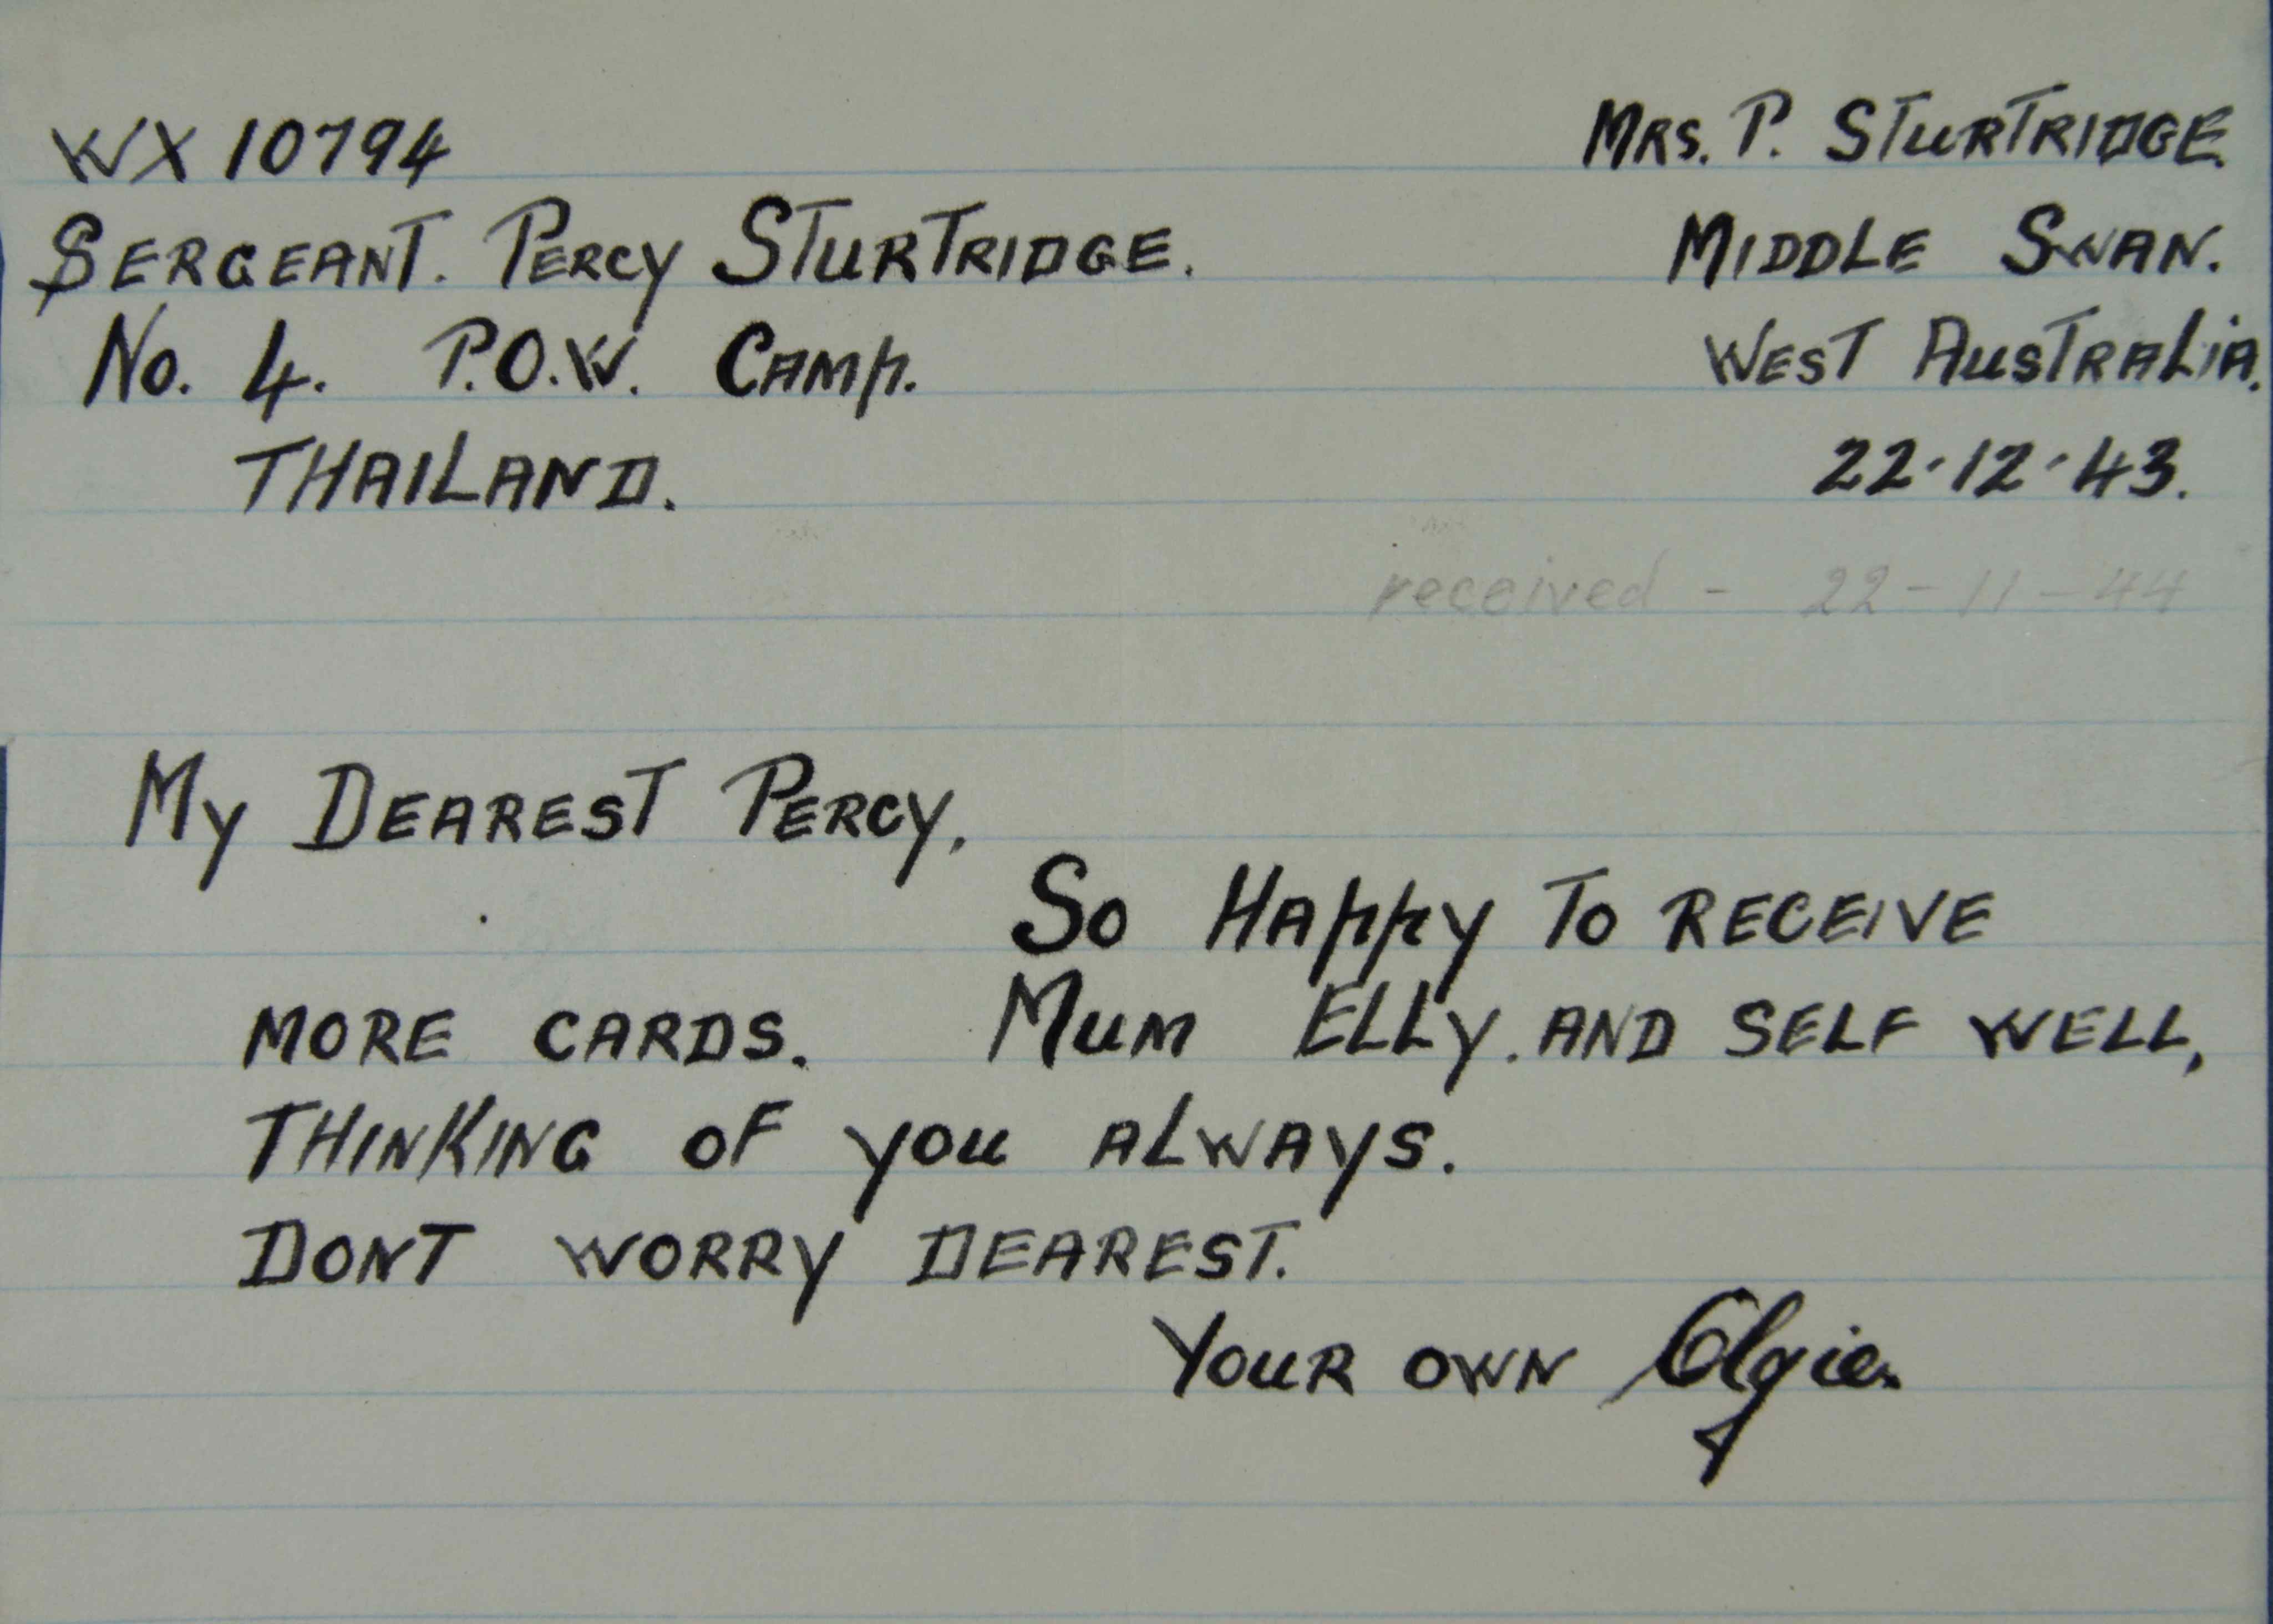 WX 10794
SERGEANT. PERCY STURTRIDGE.
No. 4. P.O.W. CAMP.
THAILAND.
MRS. P. STURTRIDGE.
MIDDLE SWAN.
WEST AUSTRALIA.
22·12·43.
received - 22-11-44
MY DEAREST PERCY,
SO HAPPY TO RECEIVE
MORE CARDS. MUM ELLY. AND SELF WELL,
THINKING OF YOU ALWAYS.
DONT WORRY DEAREST.
YOUR OWN Olgie.